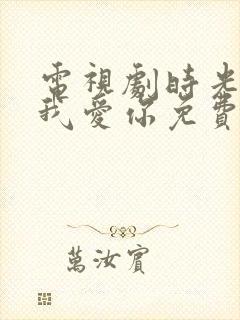 電視劇時光
我愛你免費
萬汝賓